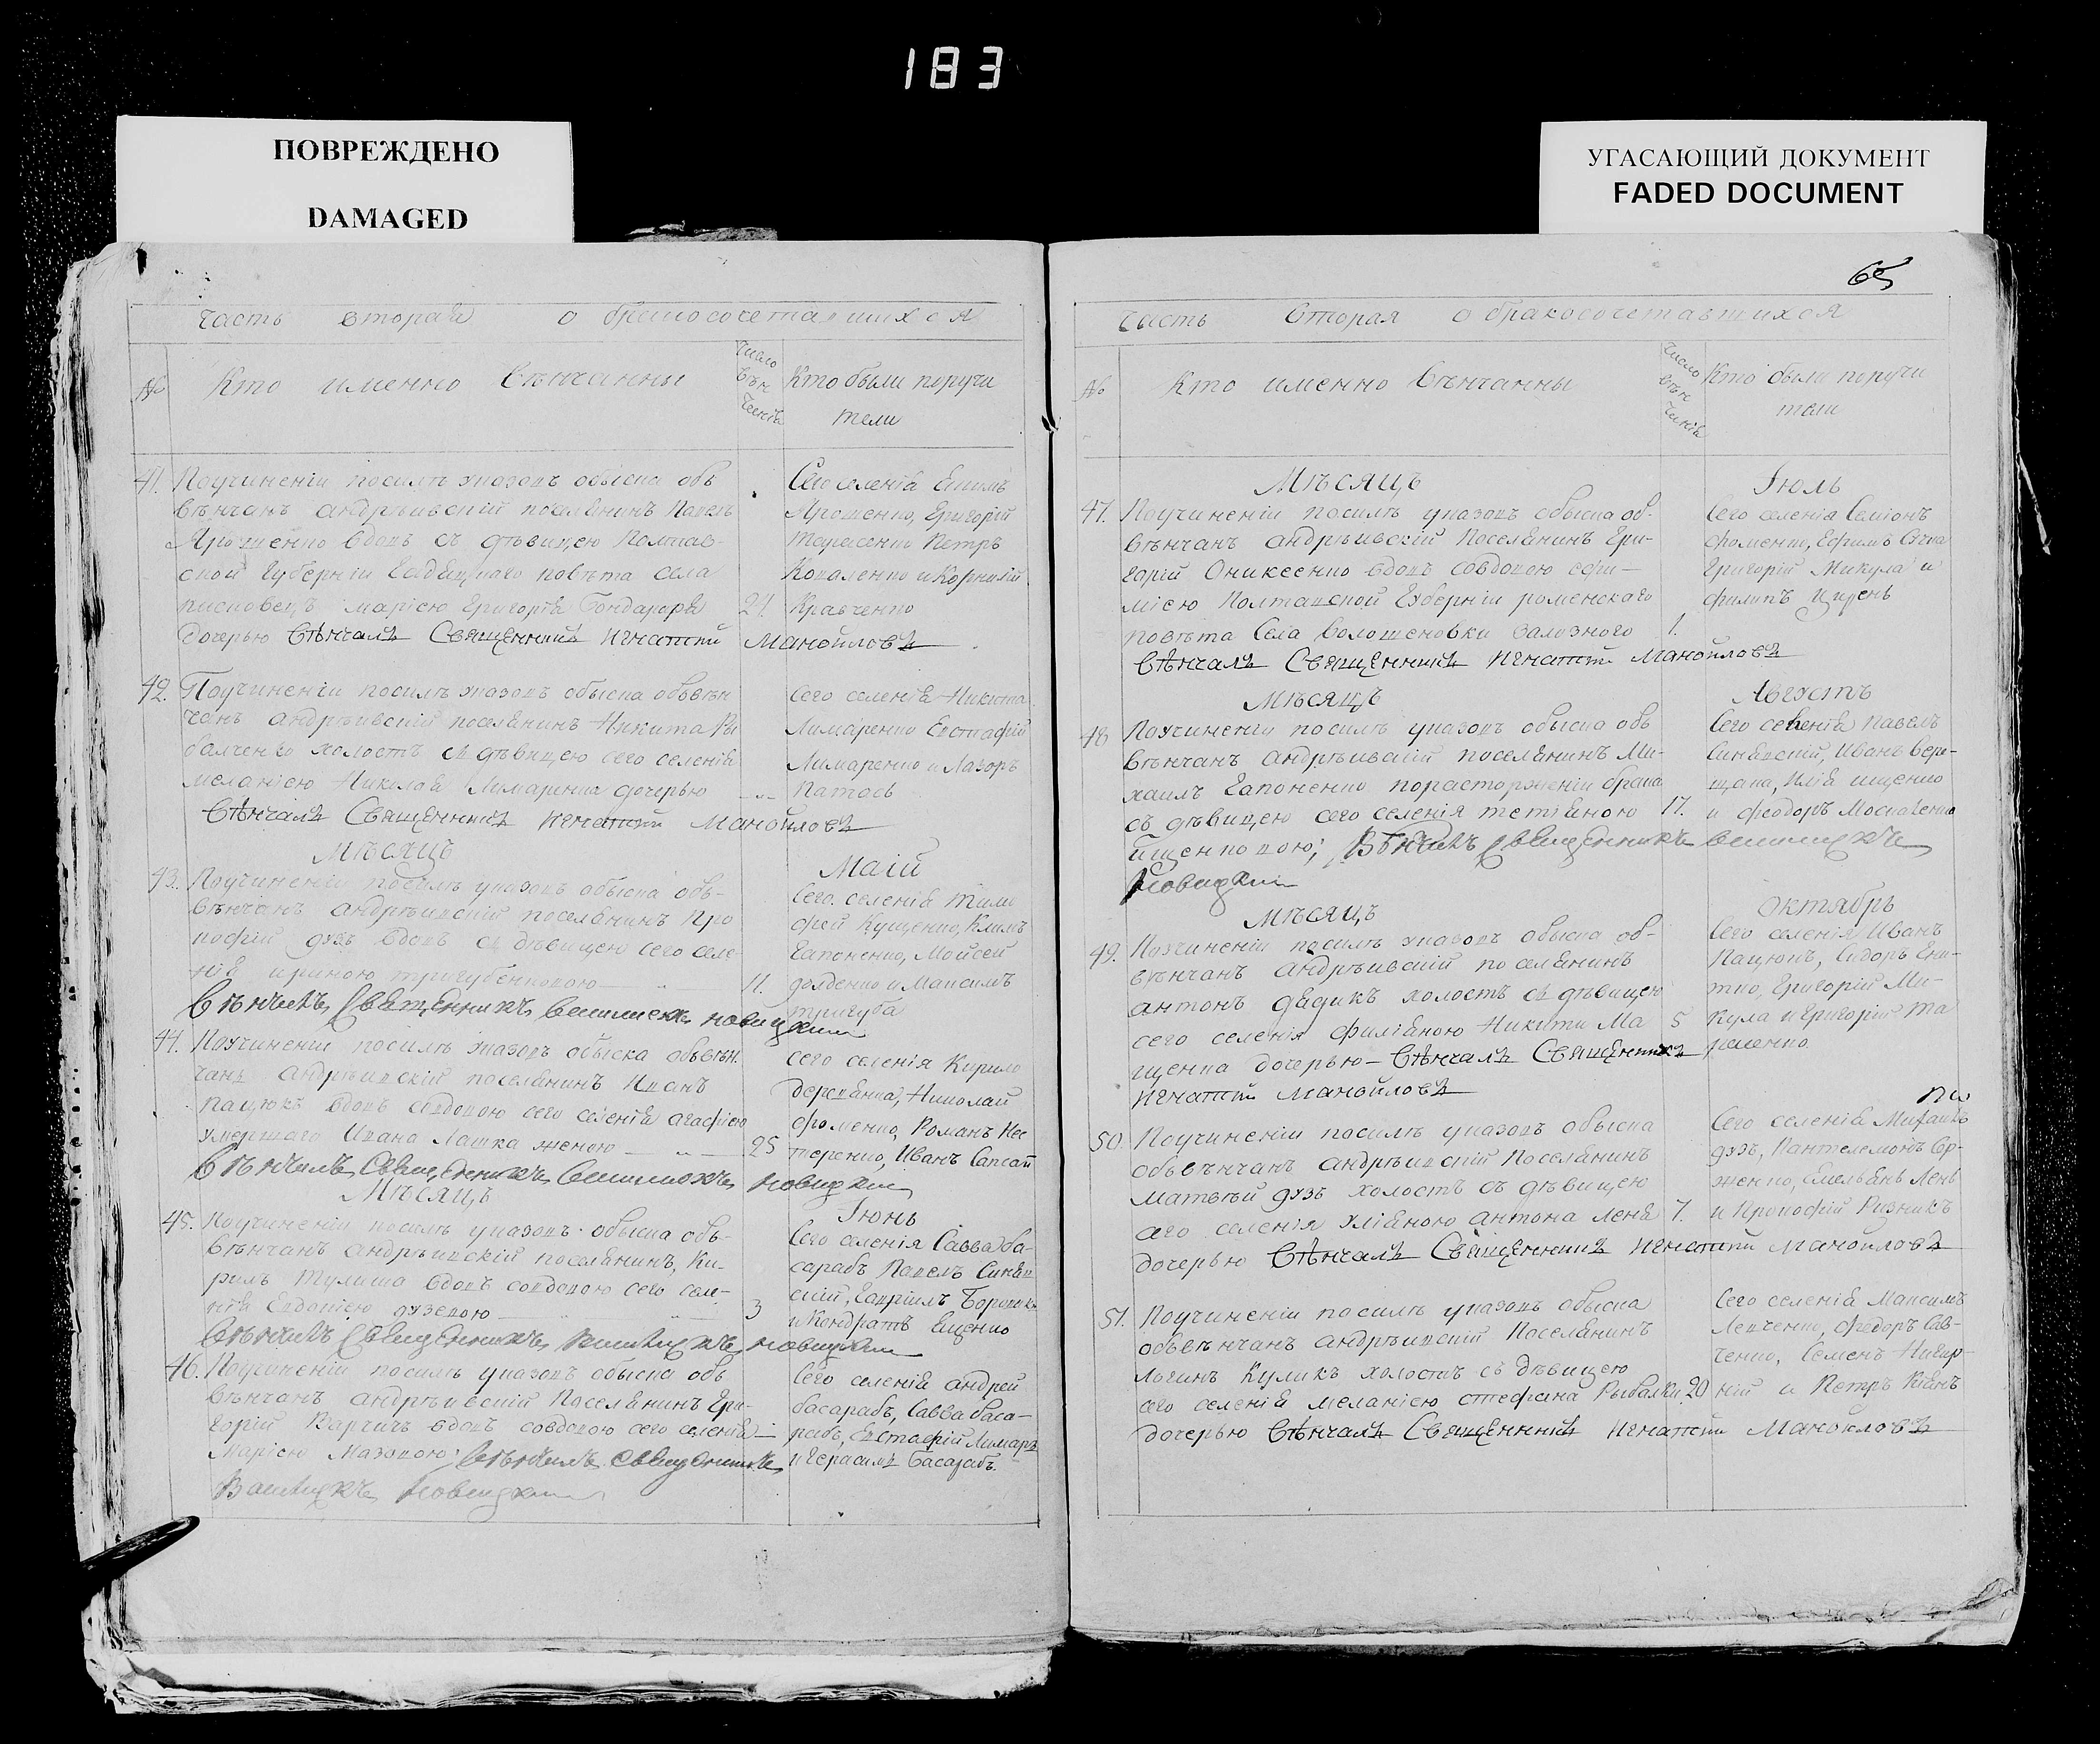 183
ПОВРЕЖДЕНО
DAMAGED
УГАСАЮЩИЙ ДОКУМЕНТ
FADED DOCUMENT
65
часть вторая о бракосочетавшихся
№ Кто именно вѣнчанны
Число вѣнчанія
Кто были поручи
тели
41. Поучиненіи посилѣ указовъ обыска объ
вѣнчанъ андрѣивскій поселянинъ Павелъ
Ярошенко вдовъ съ дѣвицею Полтав-
ской Губерніи Гадяцкаго повѣта села
марією Григорія Бондаря
дочерью Вѣнчалъ Священникъ Игнатій Манойловъ
24
Сего селенія Ефимъ
Ярошенко, Григорій
Тарасенко Петръ
Коваленко и Корнилій
Кравченко
42. Поучиненіи посилѣ указовъ обыска объвѣн
чанъ андрѣивскій поселянинъ Никита Ры
балченко холостъ съ дѣвицею сего селенія
меланією Николая Лимаренка дочерью
Вѣнчалъ Священникъ Игнатій Манойловъ
Сего селенія Никита
Лимаренко Евстафій
Лимаренко и Лазоръ
Патось
Мѣсяцъ Маій
43. Поучиненіи посилѣ указовъ обыска объ-
вѣнчанъ андрѣивскій поселянинъ Про
кофій дузь вдовъ съ дѣвицею сего селе-
нія ириною тригубенковою 11.
Вѣнчилъ Священникъ новицкий
Сего селенія Тимо
фей Кущенко, Климъ
Гапоненко, Мойсей
и Максимъ
тригуба
44. Поучиненіи посилѣ указовъ обыска объвѣн
чанъ андрѣивскій поселянинъ Иванъ
Пацюкъ вдовъ совдовою сего селенія агафією
умершаго Ивана Лашка женою 25
Вѣнчилъ Священникъ новицкий
сего селенія Кирило
деревянка, Николай
фоменко, Романъ Нес
теренко, Иванъ Сапсай
Мѣсяцъ Іюнь
45. Поучиненіи посилѣ указовъ обыска объ-
вѣнчанъ андрѣивскій поселянинъ, Ки-
рилъ Тулиша вдовъ совдовою сего селе-
нія Евдокією дузевою 3
Вѣнчилъ Священникъ новицкий
Сего селенія Савва ба-
сарабъ Павелъ Синяв
скій, Гавріилъ
и Кондратъ Ященко
46. Поучиненіи посилѣ указовъ обыска объ
вѣнчанъ андрѣивскій Поселянинъ Гри-
горій Карпичъ вдовъ совдовою сего селенія
Марією Мазовою Вѣнчилъ Священникъ
новицкий
Сего селенія андрей
басарабъ, Савва баса-
рабъ, Евстафій Лимарь
и Герасимъ басарабъ.
часть вторая о бракосочетавшихся
№ Кто именно вѣнчанны
Число вѣнчанія
Кто были поручи
тели
Мѣсяцъ Іюль
47. Поучиненіи посилѣ указовъ обыска об-
вѣнчанъ андрѣивскій Поселянинъ Гри-
горій Оникеенко вдовъ совдовою ефи-
мією Полтавской Губерніи роменскаго
повѣта Села Волошеновки Залозного 1.
Вѣнчалъ Священникъ Игнатій Манойловъ
Сего селенія Семіонъ
фоменко, Ефимъ
Григорій Микула и
филипъ
Мѣсяцъ Августъ
48 Поучиненіи посилѣ указовъ обыска объ
вѣнчанъ андрѣивскій поселянинъ Ми-
хаилъ Гапоненко порасторженіи брака
съ дѣвицею сего селенія тетіяною 17.
ищенковою; Вѣнчилъ Священникъ
Новицкий
Сего селенія Павелъ
Синявскій, Иванъ Вере-
щака, Илія ищенко
и феодоръ Москаленко
Мѣсяцъ октябрь
49. Поучиненіи посилѣ указовъ обыска об-
вѣнчанъ андрѣивскій поселянинъ
антонъ дядикъ холостъ съ дѣвицею
сего селенія филіяною Никити Ма 5
щенка дочерью - Вѣнчалъ Священникъ
Игнатій Манойловъ
Сего селенія Иванъ
Пацюкъ, Сидоръ
Григорій Ми-
кула и Григорій Та
расенко
50. Поучиненіи посилѣ указовъ обыска
объвѣнчанъ андрѣивскій Поселянинъ
Матвѣй дузь холостъ съ дѣвицею
сего селенія уліяною антона Леня 7.
дочерью Вѣнчалъ Священникъ Игнатій Манойловъ
Сего селенія Михаилъ
дузь, Пантелемонъ
Емельянъ Лень
и Прокофій Рѣзникъ
51. Поучиненіи посилѣ указовъ обыска
объвѣнчан андрѣивскій Поселянинъ
Логинъ Куликъ холостъ съ дѣвицею
сего селенія меланією стефана Рыбалки 20
дочерью Вѣнчалъ Священникъ Игнатій Манойловъ
Сего селенія Максимъ
Левченко, Федоръ Сав-
ченко, Семенъ
и Петръ